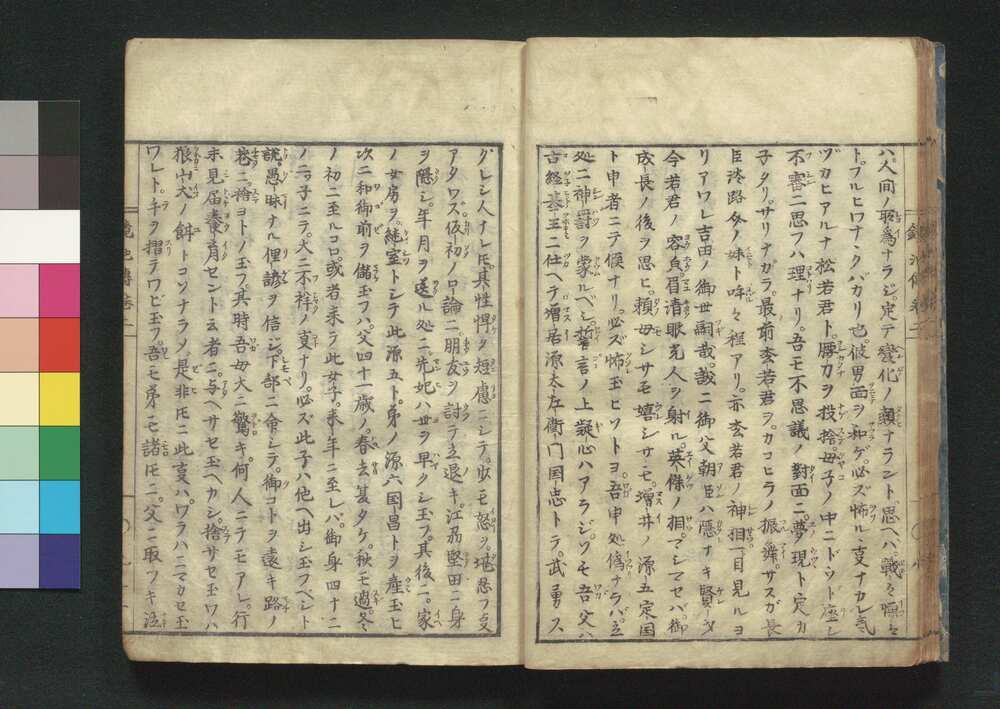 ハ人間ノ所為ナラジ定テ変化ノ類ナラント思ヘバ戦々慄々
トフルヒワナヽクバカリ也彼男面ヲ和ゲ必ズ怖ルヽ支ナカレ気
ヅカヒアルナ松若君ト腰カヲ投捨母子ノ中ニドット座シ
不審ニ思フハ理ナリ吾モ不思議ノ対面ニ夢現ト定カ
子タリサリナガラ最前松若君ヲカコヒラノ振舞サスガ長
臣淡路ガノ妹ト哞々程アリ亦松若君ノ神相一目見ルヨ
リアワレ吉田ノ御世嗣哉誠ニ御父朝臣ハ隠ナキ賢ニタ
今若君ノ容貌眉清眼光人ヲ射ル英傑ノ相マシマセバ御
成長ノ後ヲ思ヒ頼母シサモ嬉シサモ増井ノ源五定国
ト申者ニテ候ナリ必ズ怖玉ヒソトヨ吾申処偽ナラバ立
処ニ神罸ヲ蒙ルベシ誓言ノ上疑心ハアラジソモ吾父ハ
古経基王ニ仕ヘテ増居源太左衛門国忠トテ武勇ス
グレシ人ナレ𪜈其性悍ク短慮ニシテ少モ怒ヲ堪忍フ支
アタワズ仮初ノ口論ニ朋友ヲ討テ立退キ江刕堅田ニ身
ヲ隠シ年月ヲ送ル処ニ先妃ハ世ヲ早クシ玉フ其後ニ家
ノ女房ヲ継室トシテ此源五ト弟ノ源六国昌トヲ産玉ヒ
次ニ和御前ヲ儲玉フハ父四十一歳ノ春去夏タケ秋モ過冬
ノ初ニ至ルコロ或者来ラ此女子来年ニ至レバ御身四十二
ノ二ツ子ニテ大ニ不祥ノ支ナリ必ズ此子ハ他ヘ出シ玉フベシト
説愚昧ナル俚諺ヲ信ジ下部ニ命シテ御コトヲ遠キ路ノ
巷ニ捨ヨトノ玉フ其時吾母大ニ驚キ何人ニテモアレ行
末見届養育セント云者ニ与ヘサセ玉ヘカシ捨サセ玉ワバ
狼山犬ノ餌トコソナラメ是非𪜈ニ此支ハワラハニマカセ玉
ワレト手ヲ摺テワビ玉フ吾モ弟モ諸𪜈ニ父ニ取ツキ泣